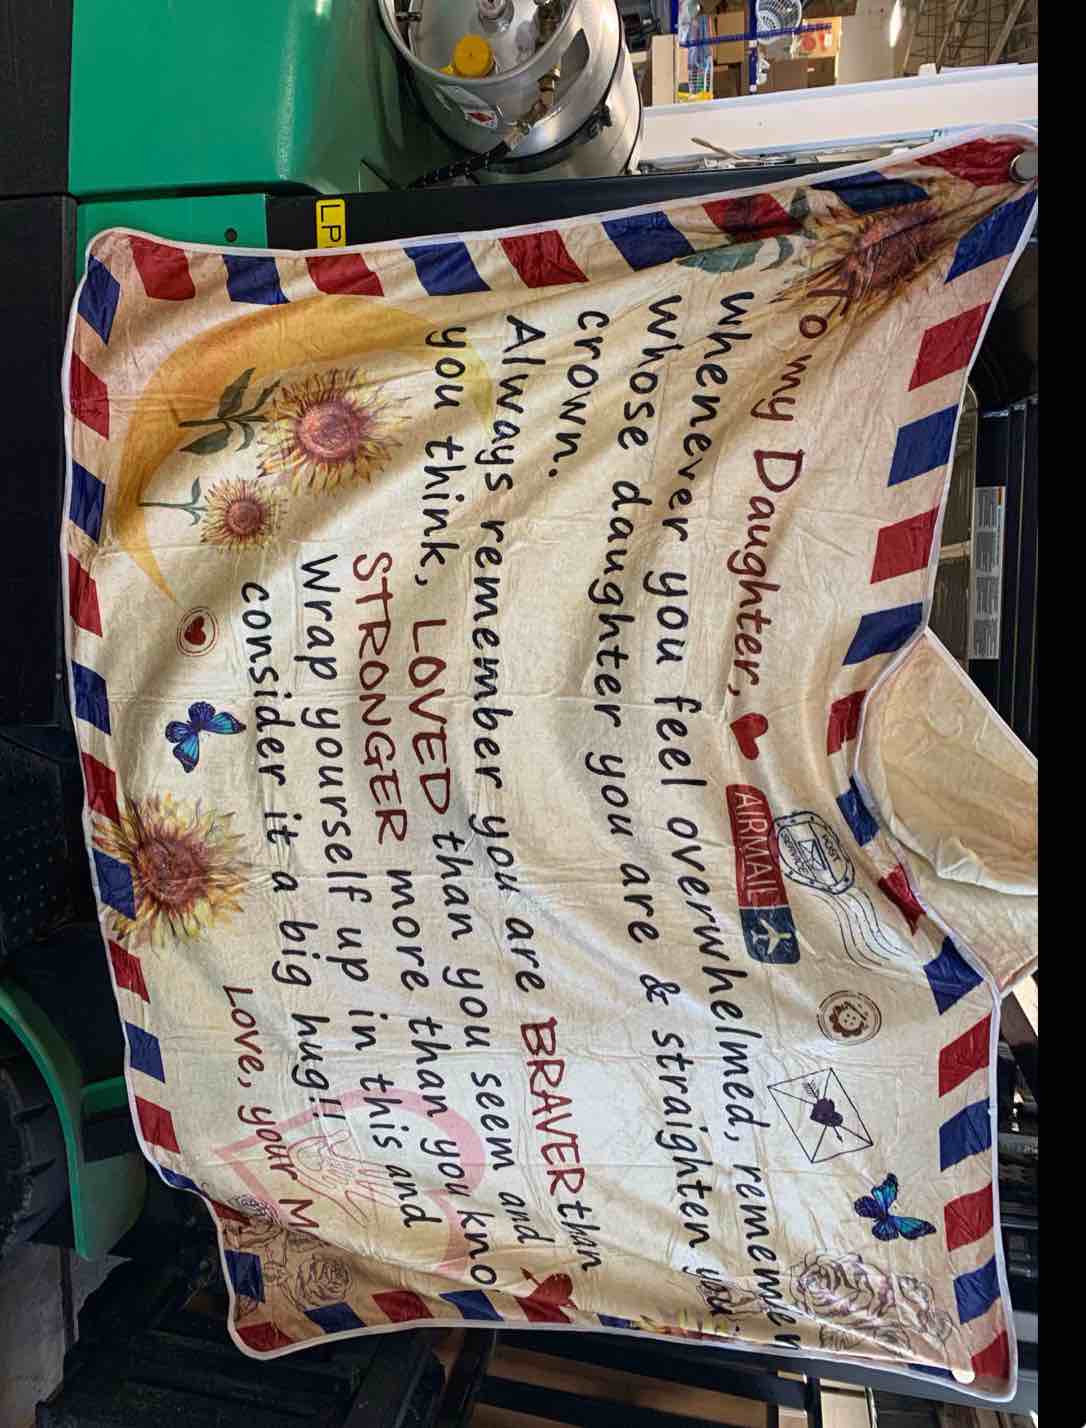 To my Daughter,
AIRMAIL
POST
whenever you feel overwhelmed, remember
whose daughter you are & straighten you
crown.
Always remember you are BRAVER than
you think, LOVED than you seem and
STRONGER more than you kno
Wrap yourself up in this and
consider it a big hug!!
Love, your M
LP